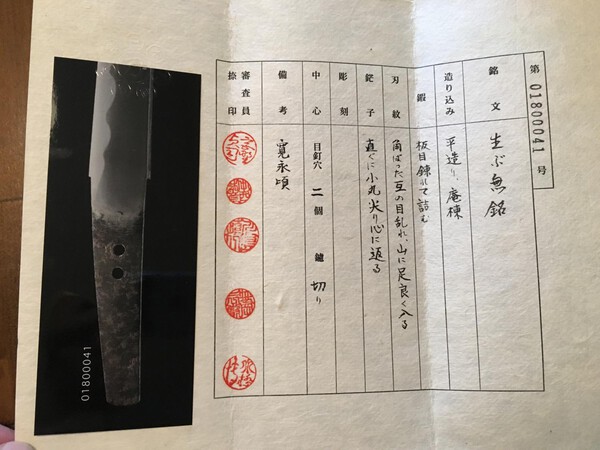 第 01800041 号
銘文 生ぶ無銘
造り込み 平造り、庵棟
鍛 板目錬れて詰む
刃紋 角ばった互の目乱れ、山に足良く入る
鋩子 直ぐに小丸尖り心に返る
彫刻
中心 目釘穴 二個 鑢 切り
備考 寛永頃
審査員捺印
01800041